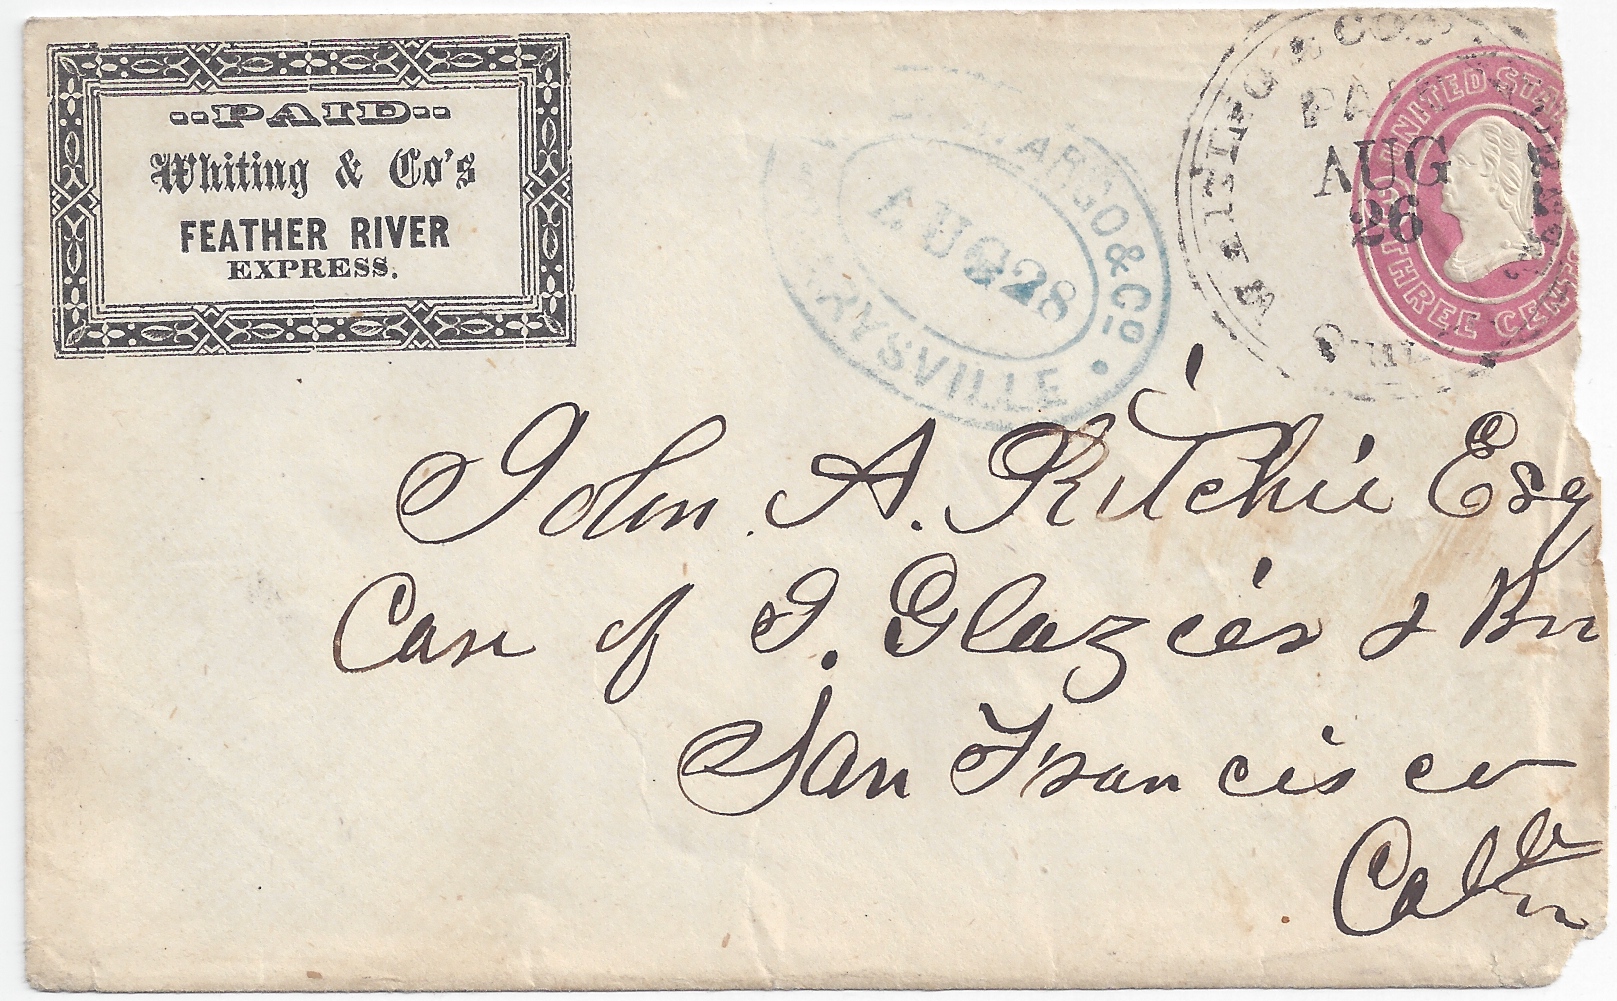 PAID
Whiting & Co's
FEATHER RIVER
EXPRESS.
ARGO & Co
AUG 28
RYSVILLE
WHITING & CO'S
PAI
AUG
26
QUIN
UNITED STA
3
THREE CENTS
John A. Ritchie Esq
Care of I. Glazier & Bro
San Francisco
Cal